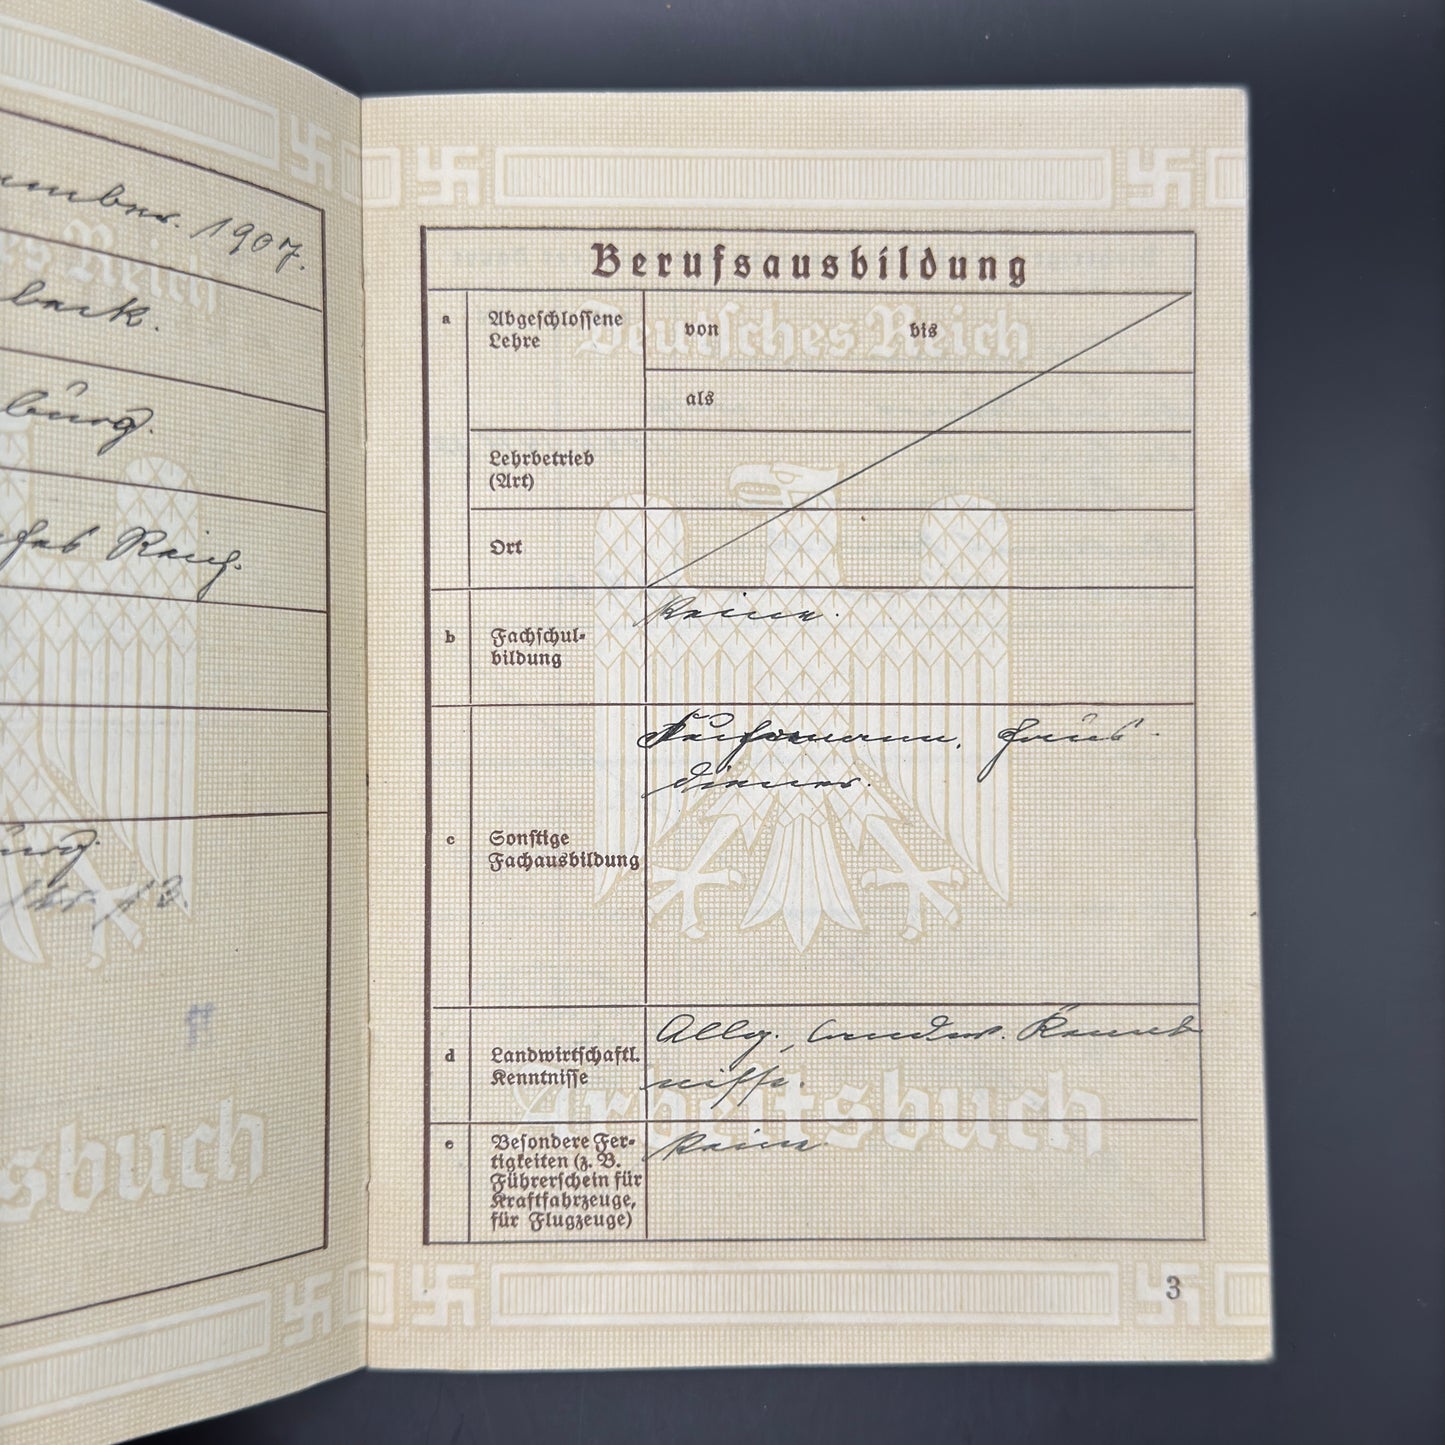 1907.
Reich.
13.
Deutsches Reich
Arbeitsbuch
Berufsausbildung
a Abgeschlossene
Lehre
von bis
als
Lehrbetrieb
(Art)
Ort
b Fachschul-
bildung
Keine.
c Sonstige
Fachausbildung
Haus-
diener.
d Landwirtschaftl.
Kenntnisse
Allg. landw. Kennt-
nisse.
e Besondere Fer-
tigkeiten (z. B.
Führerschein für
Kraftfahrzeuge,
für Flugzeuge)
Keine
3